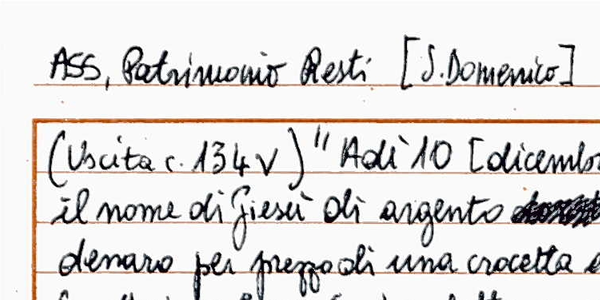 ASS, Patrimonio Resti [S. Domenico]
(Uscita c. 134v) " Adì 10 [dicembr
il nome di Giesù di argento
denaro per prezzo di una crocetta